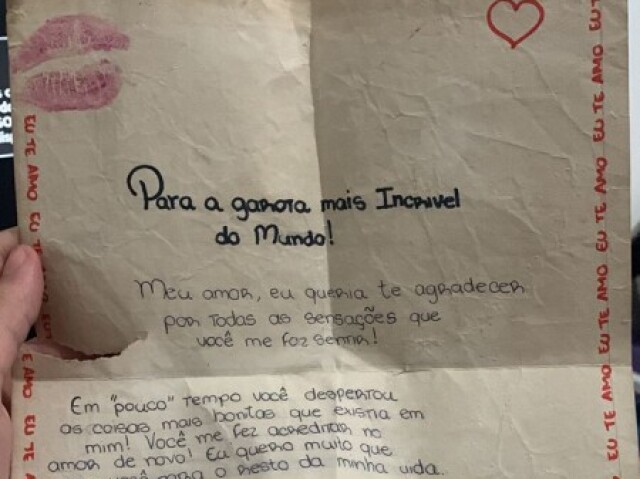 Para a garota mais Incrivel
do Mundo!
Meu amor, eu queria te agradecer
por todas as sensações que
você me faz sentir!
Em "pouco" tempo você despertou
as coisas mais bonitas que existia em
mim! Você me fez acreditar no
amor de novo! Eu quero muito que
você para o resto da minha vida.
EU TE AMO EU TE AMO EU TE AMO EU TE AMO EU TE AMO EU TE AMO
EU TE AMO EU
E AMO EU TE